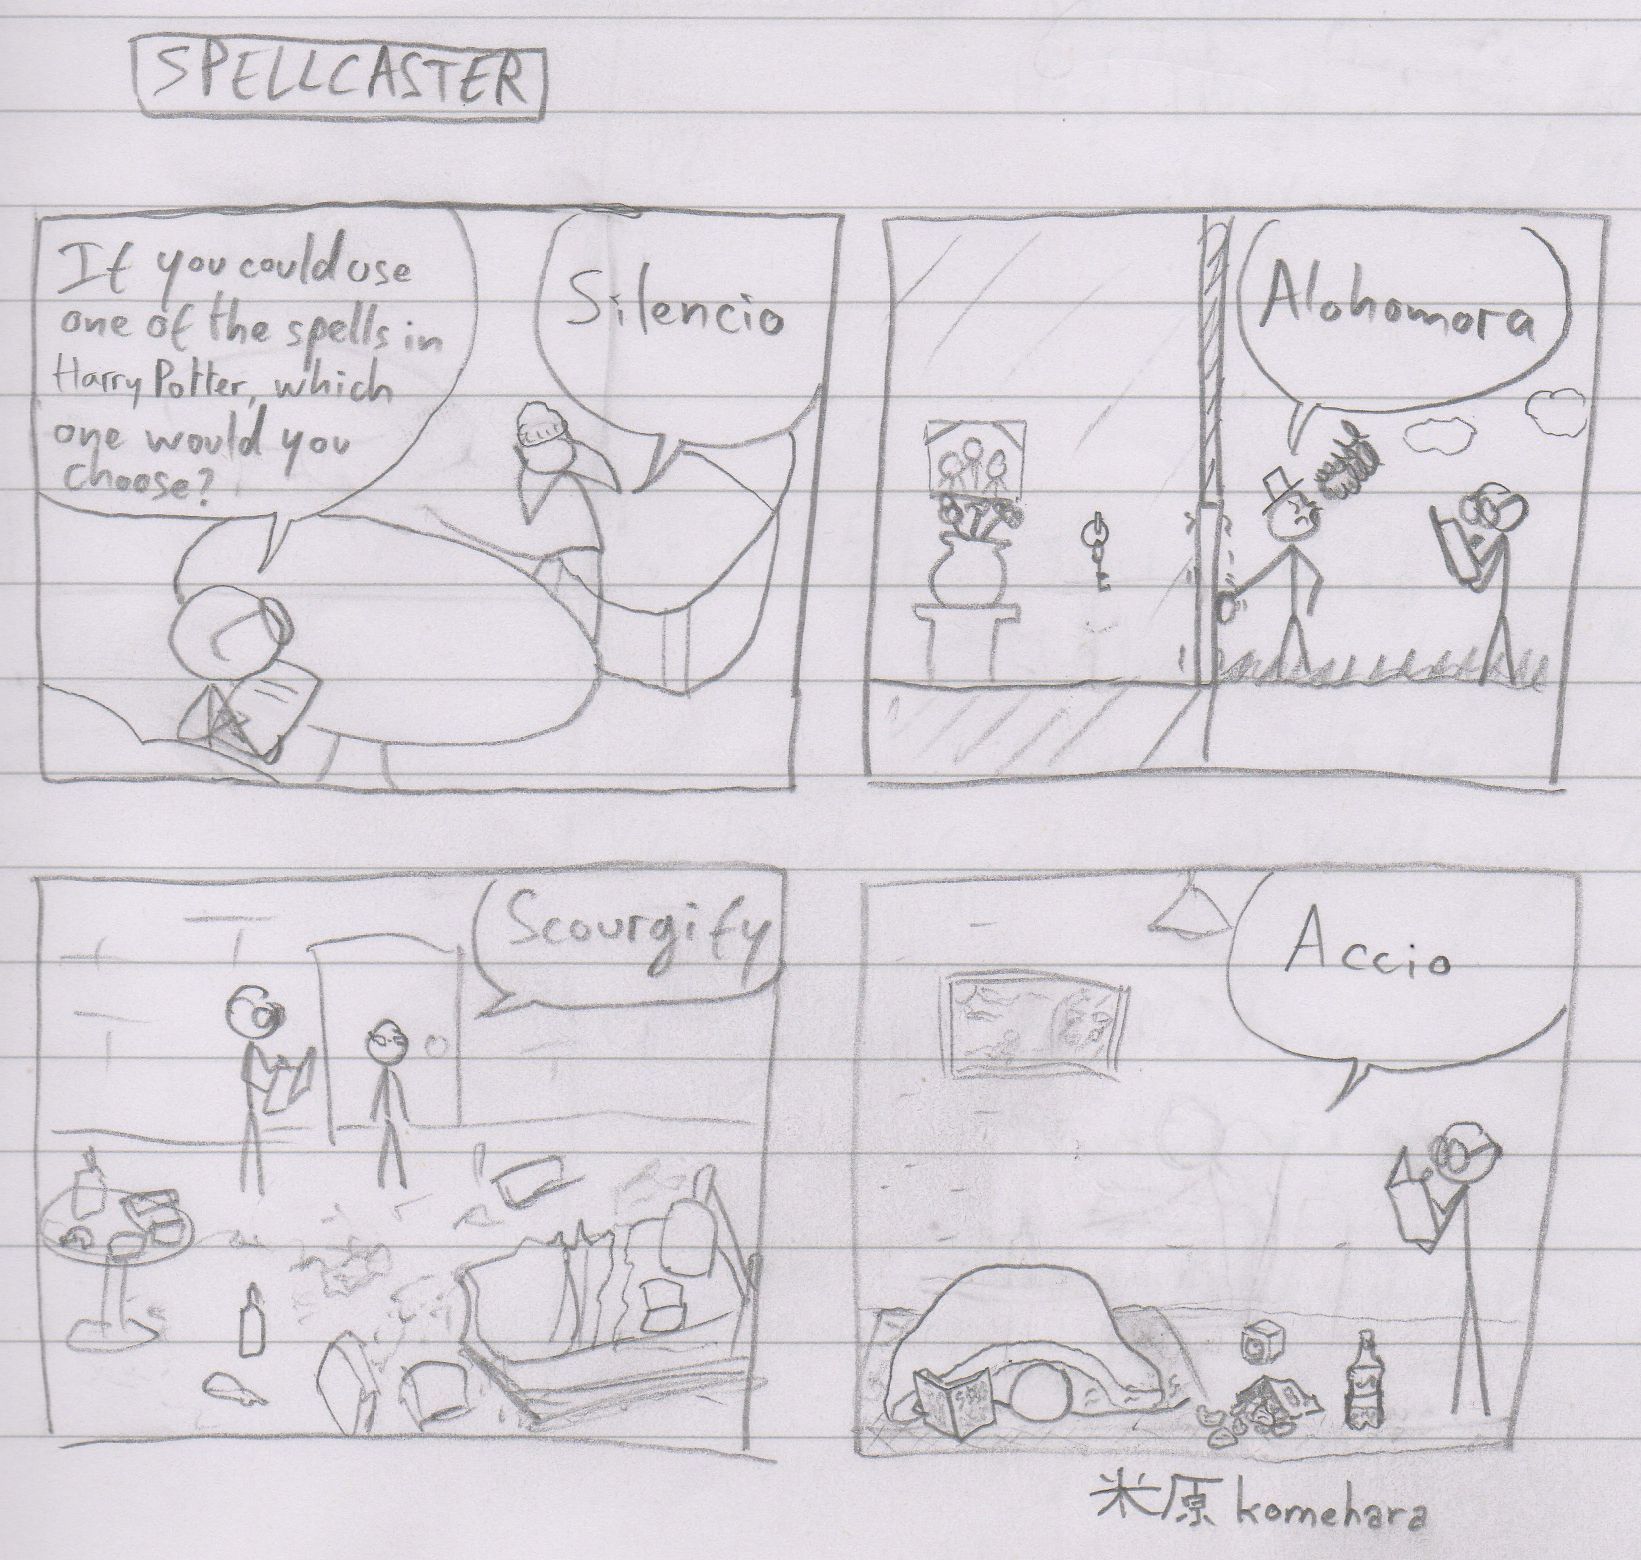 SPELLCASTER
If you could use
one of the spells in
Harry Potter, which
one would you
choose?
Silencio
Alohomora
Scourgify
Accio
米原 komehara